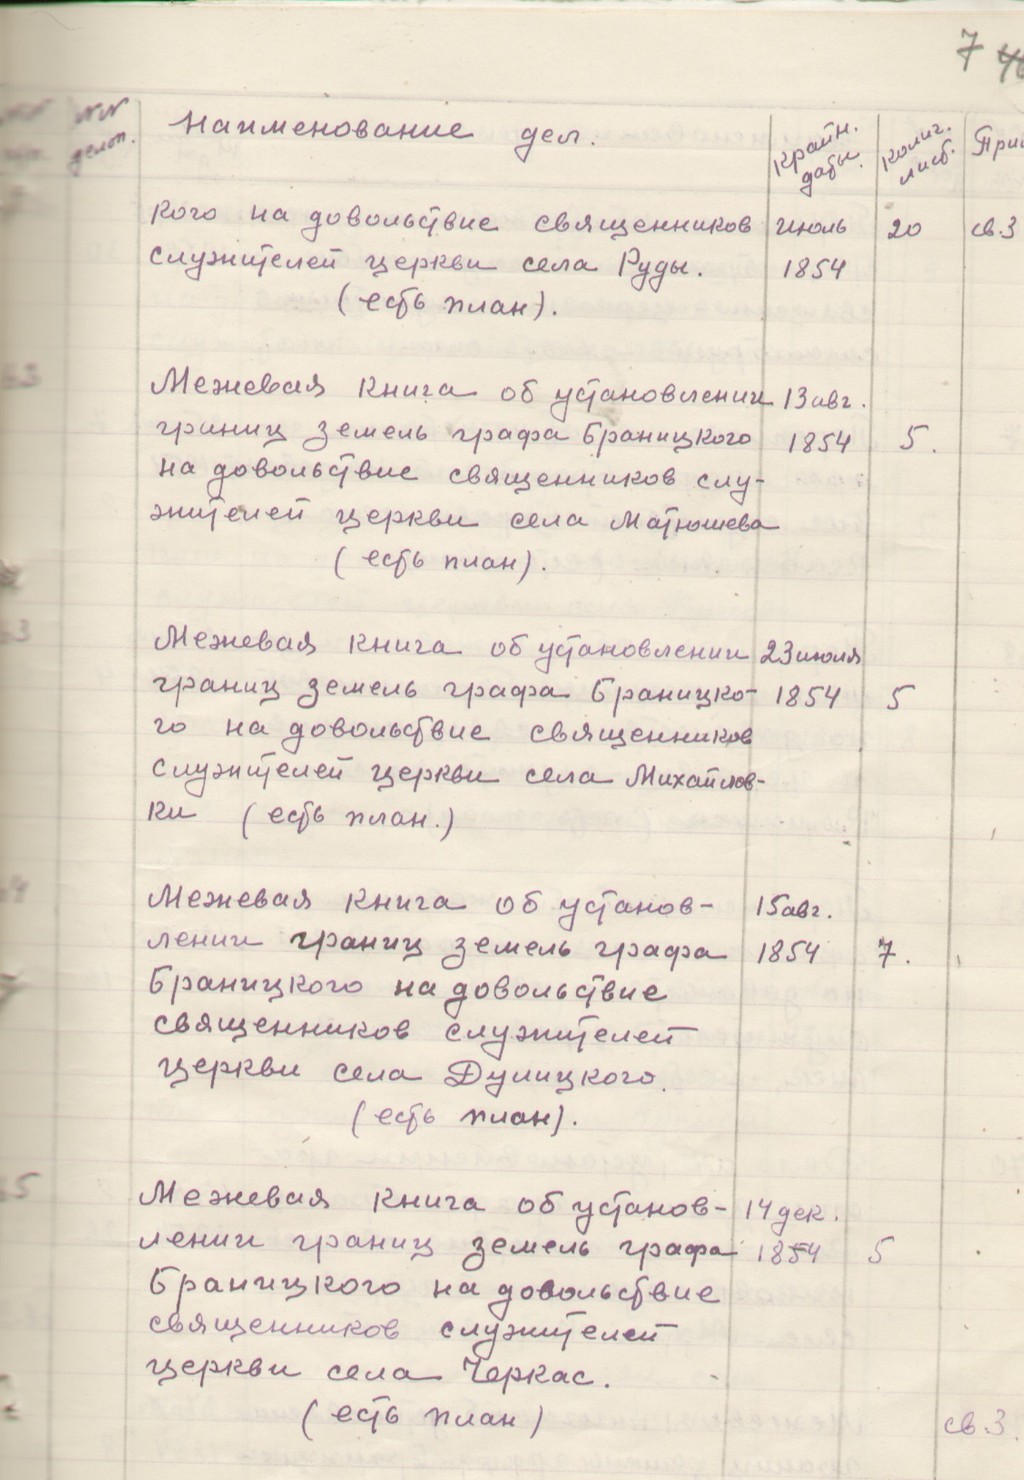 7
№№ делоп. Наименование дел. Крайн. даты. Колич. лист.
кого на довольствие священников июль 20 св.3
служителей церкви села Руды. 1854
(есть план).
Межевая книга об установлении 13 авг.
границ земель графа Браницкого 1854 5.
на довольствие священников слу-
жителей церкви села Матюшева
(есть план).
Межевая книга об установлении 23 июля
границ земель графа Браницко- 1854 5
го на довольствие священников
служителей церкви села Михайлов-
ки (есть план.)
Межевая книга об установ- 15 авг.
лении границ земель графа 1854 7.
Браницкого на довольствие
священников служителей
церкви села Дулицкого.
(есть план).
Межевая книга об установ- 14 дек.
лении границ земель графа 1854 5
Браницкого на довольствие
священников служителей
церкви села Черкас.
(есть план) св.3